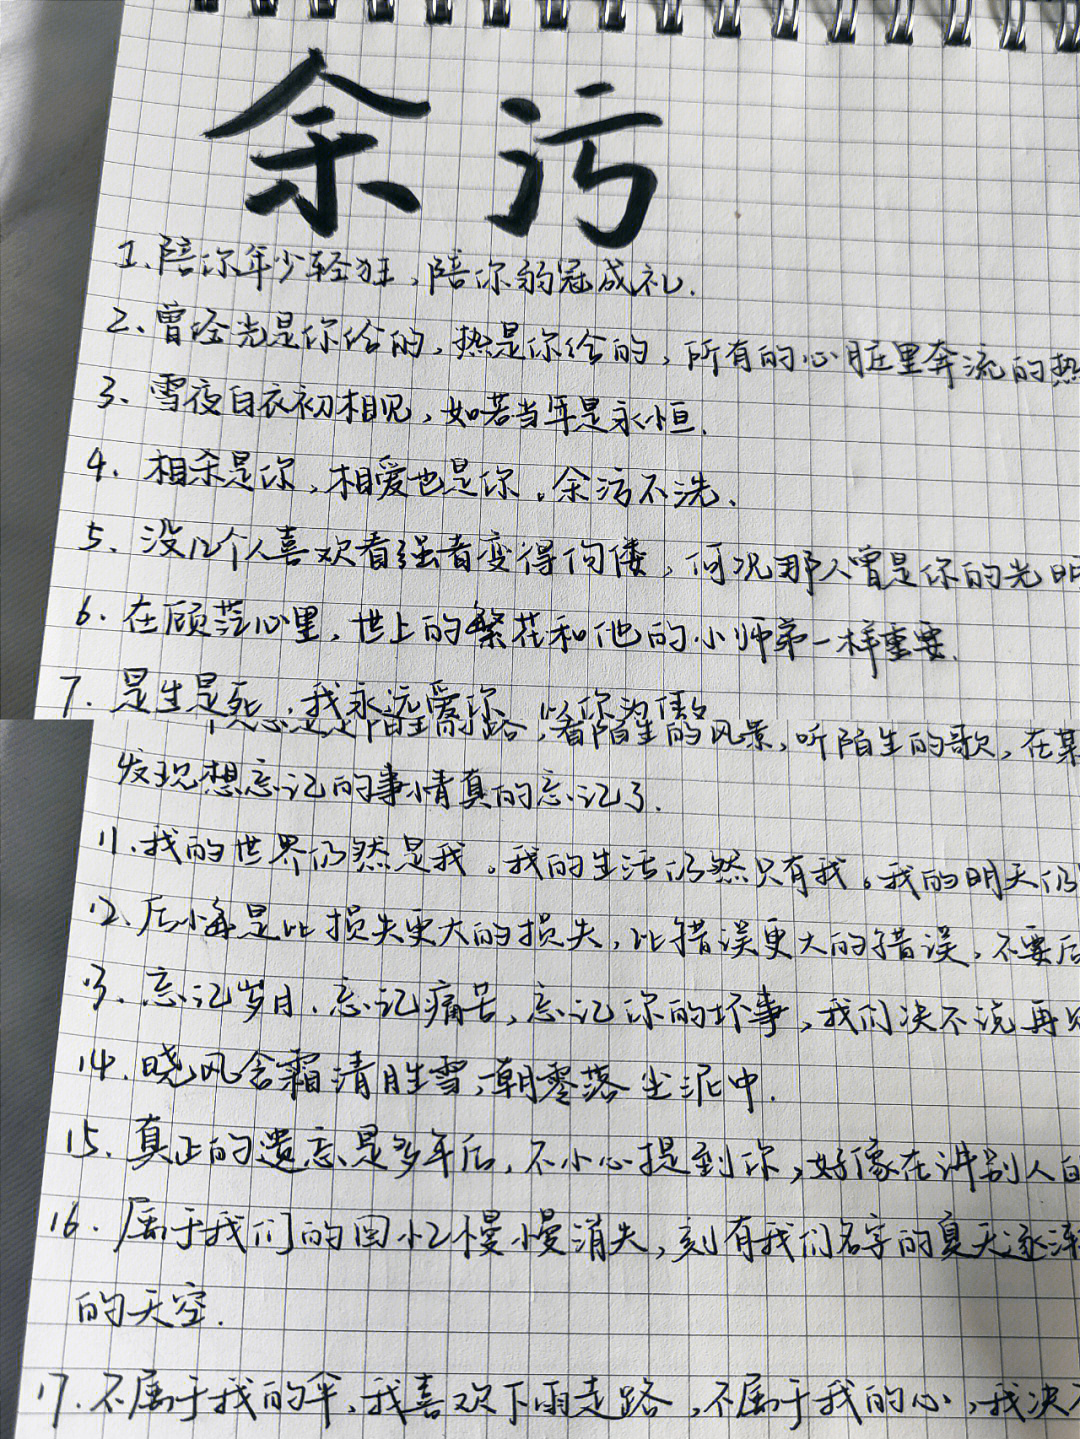 余污
1.陪你年少轻狂,陪你弱冠成礼.
2、曾经光是你给的,热是你给的,所有的心脏里奔流的热
3、雪夜白衣初相见,如若当年是永恒.
4.相杀是你,相爱也是你。余污不洗、
5、没几个人喜欢看强者变得佝偻,何况那人曾是你的光明
6.在顾茫心里,世上的繁花和他的小师弟一样重要.
7.是生是死,我永远爱你
陌生的路,看陌生的风景,听陌生的歌,在某
发现想忘记的事情真的忘记了.
11.我的世界仍然是我。我的生活仍然只有我。我的明天仍
12.后悔是比损失更大的损失,比错误更大的错误,不要后
13、忘记岁月.忘记痛苦,忘记你的坏事,我们决不说再见
14.晓风含霜清胜雪,一朝零落尘泥中.
15.真正的遗忘是多年后,不小心提到你,好像在讲别人
16.属于我们的回忆慢慢消失,刻有我们名字的夏天逐渐
的天空.
17.不属于我的伞,我喜欢下雨走路,不属于我的心,我决不